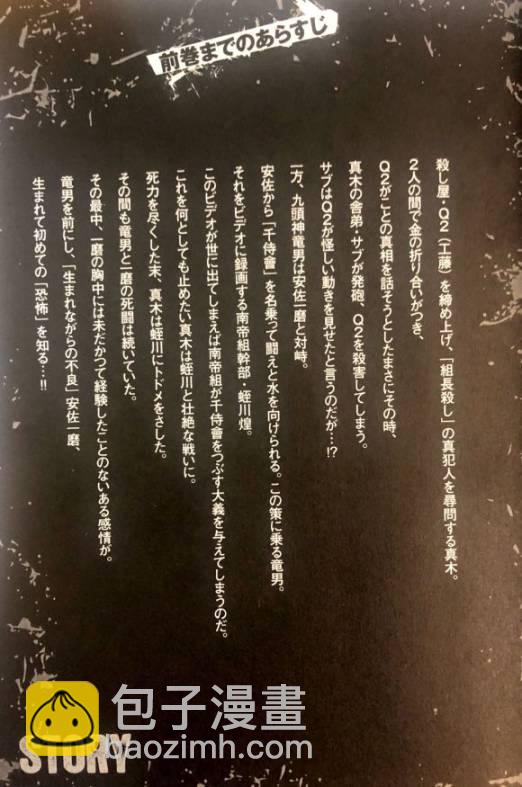 前巻までのあらすじ
殺し屋・Q2（工藤）を締め上げ、「組長殺し」の真犯人を尋問する真木。
2人の間で金の折り合いがつき、
Q2がことの真相を話そうとしたまさにその時、
真木の舎弟・サブが発砲、Q2を殺害してしまう。
サブはQ2が怪しい動きを見せたと言うのだが…!?
一方、九頭神竜男は安佐一磨と対峙。
安佐から「千侍會」を名乗って闘えと水を向けられる。この策に乗る竜男。
それをビデオに録画する南帝組幹部・蛭川煌。
このビデオが世に出てしまえば南帝組が千侍會をつぶす大義を与えてしまうのだ。
これを何としても止めたい真木は蛭川と壮絶な戦いに。
死力を尽くした末、真木は蛭川にトドメをさした。
その間も竜男と一磨の死闘は続いていた。
その最中、一磨の胸中には未だかつて経験したことのないある感情が。
竜男を前にし、「生まれながらの不良」安佐一磨、
生まれて初めての「恐怖」を知る…!!
STORY
包子漫畫
baozimh.com